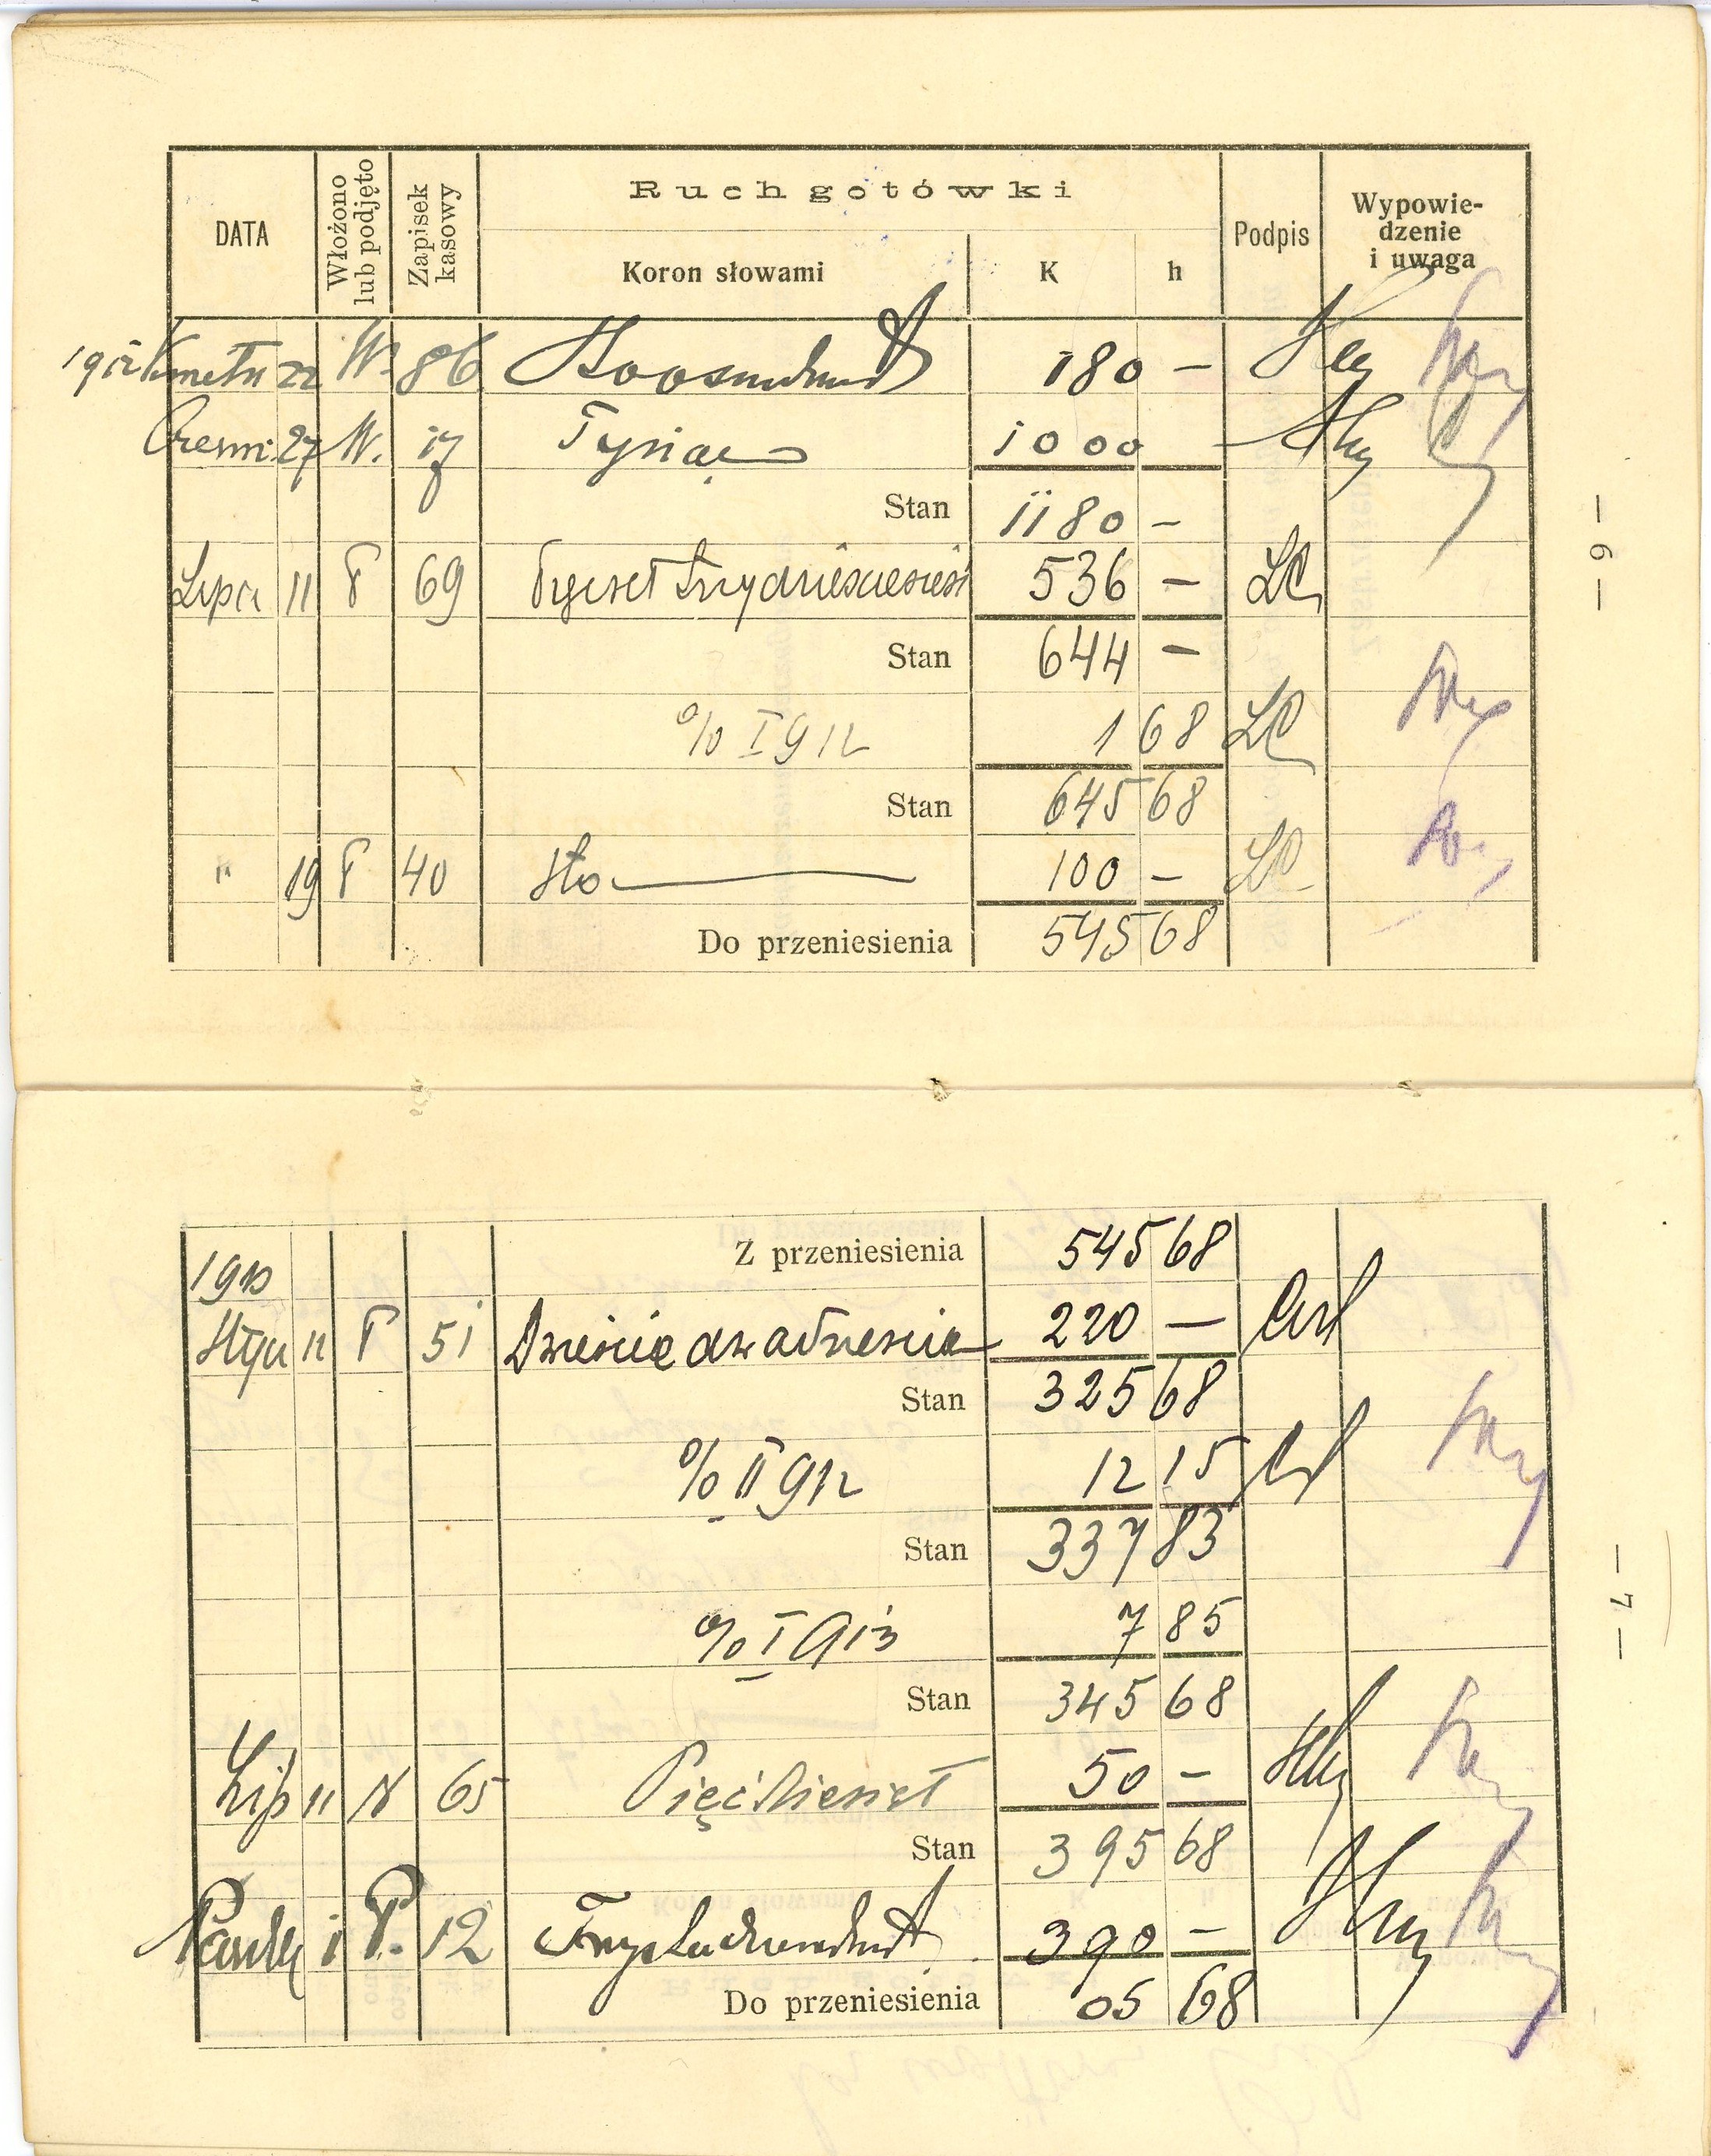 DATA Włożono lub podjęto Zapisek kasowy Ruch gotówki Podpis Wypowie-dzenie i uwaga
Koron słowami K h
1912 22 W. 86 180 —
27 W. 17 Tysiąc 1000 —
Stan 1180 —
Lipca 11 P 69 Pięćset trzydzieścisześć 536 — LC
Stan 644 —
% I 912 1 68 LC
Stan 645 68
" 19 P 40 Sto 100 — LC
Do przeniesienia 545 68
— 6 —
Z przeniesienia 545 68
1913
Stycz 11 P 51 Dwieście dwadzieścia 220 —
Stan 325 68
% II 912 12 15
Stan 337 83
% I 913 7 85
Stan 345 68
Lip 11 W 65 Pięćdziesiąt 50 —
Stan 395 68
1 P. 12 390 —
Do przeniesienia 05 68
— 7 —